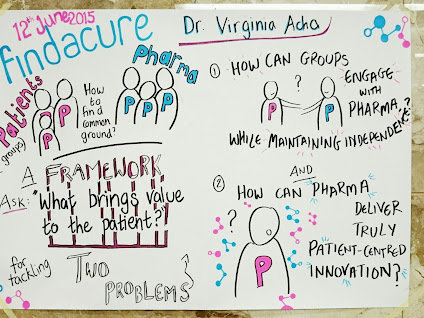 12th June 2015
findacure
Dr. Virginia Acha
Patients
(groups)
P
P
P
How
to
find
common
ground?
Pharma
P
P
P
A FRAMEWORK
ASK: "What brings value
to the patient?"
for
tackling
TWO
PROBLEMS
① HOW CAN GROUPS
?
P
P
ENGAGE
WITH
PHARMA,
WHILE MAINTAINING INDEPENDENCE?
AND
② HOW CAN PHARMA
?
P
DELIVER
TRULY
PATIENT-CENTRED
INNOVATION?